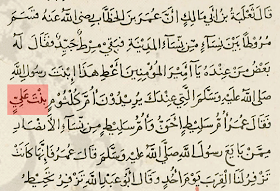 قال ثعلبة بن أبي مالك إن عمر بن الخطاب رضي الله عنه قسم
مروطا بين نساء من نساء المدينة فبقي مرط جيد فقال له
بعض من عنده يا أمير المؤمنين أعط هذا ابنت رسول الله
صلى الله عليه وسلم التي عندك يريدون أم كلثوم بنت علي
فقال عمر أم سليط أحق وأم سليط من نساء الأنصار
ممن بايع رسول الله صلى الله عليه وسلم قال عمر فإنها كانت
تزفر لنا القرب يوم أحد وقال أبو عبد الله تزفر تخيط